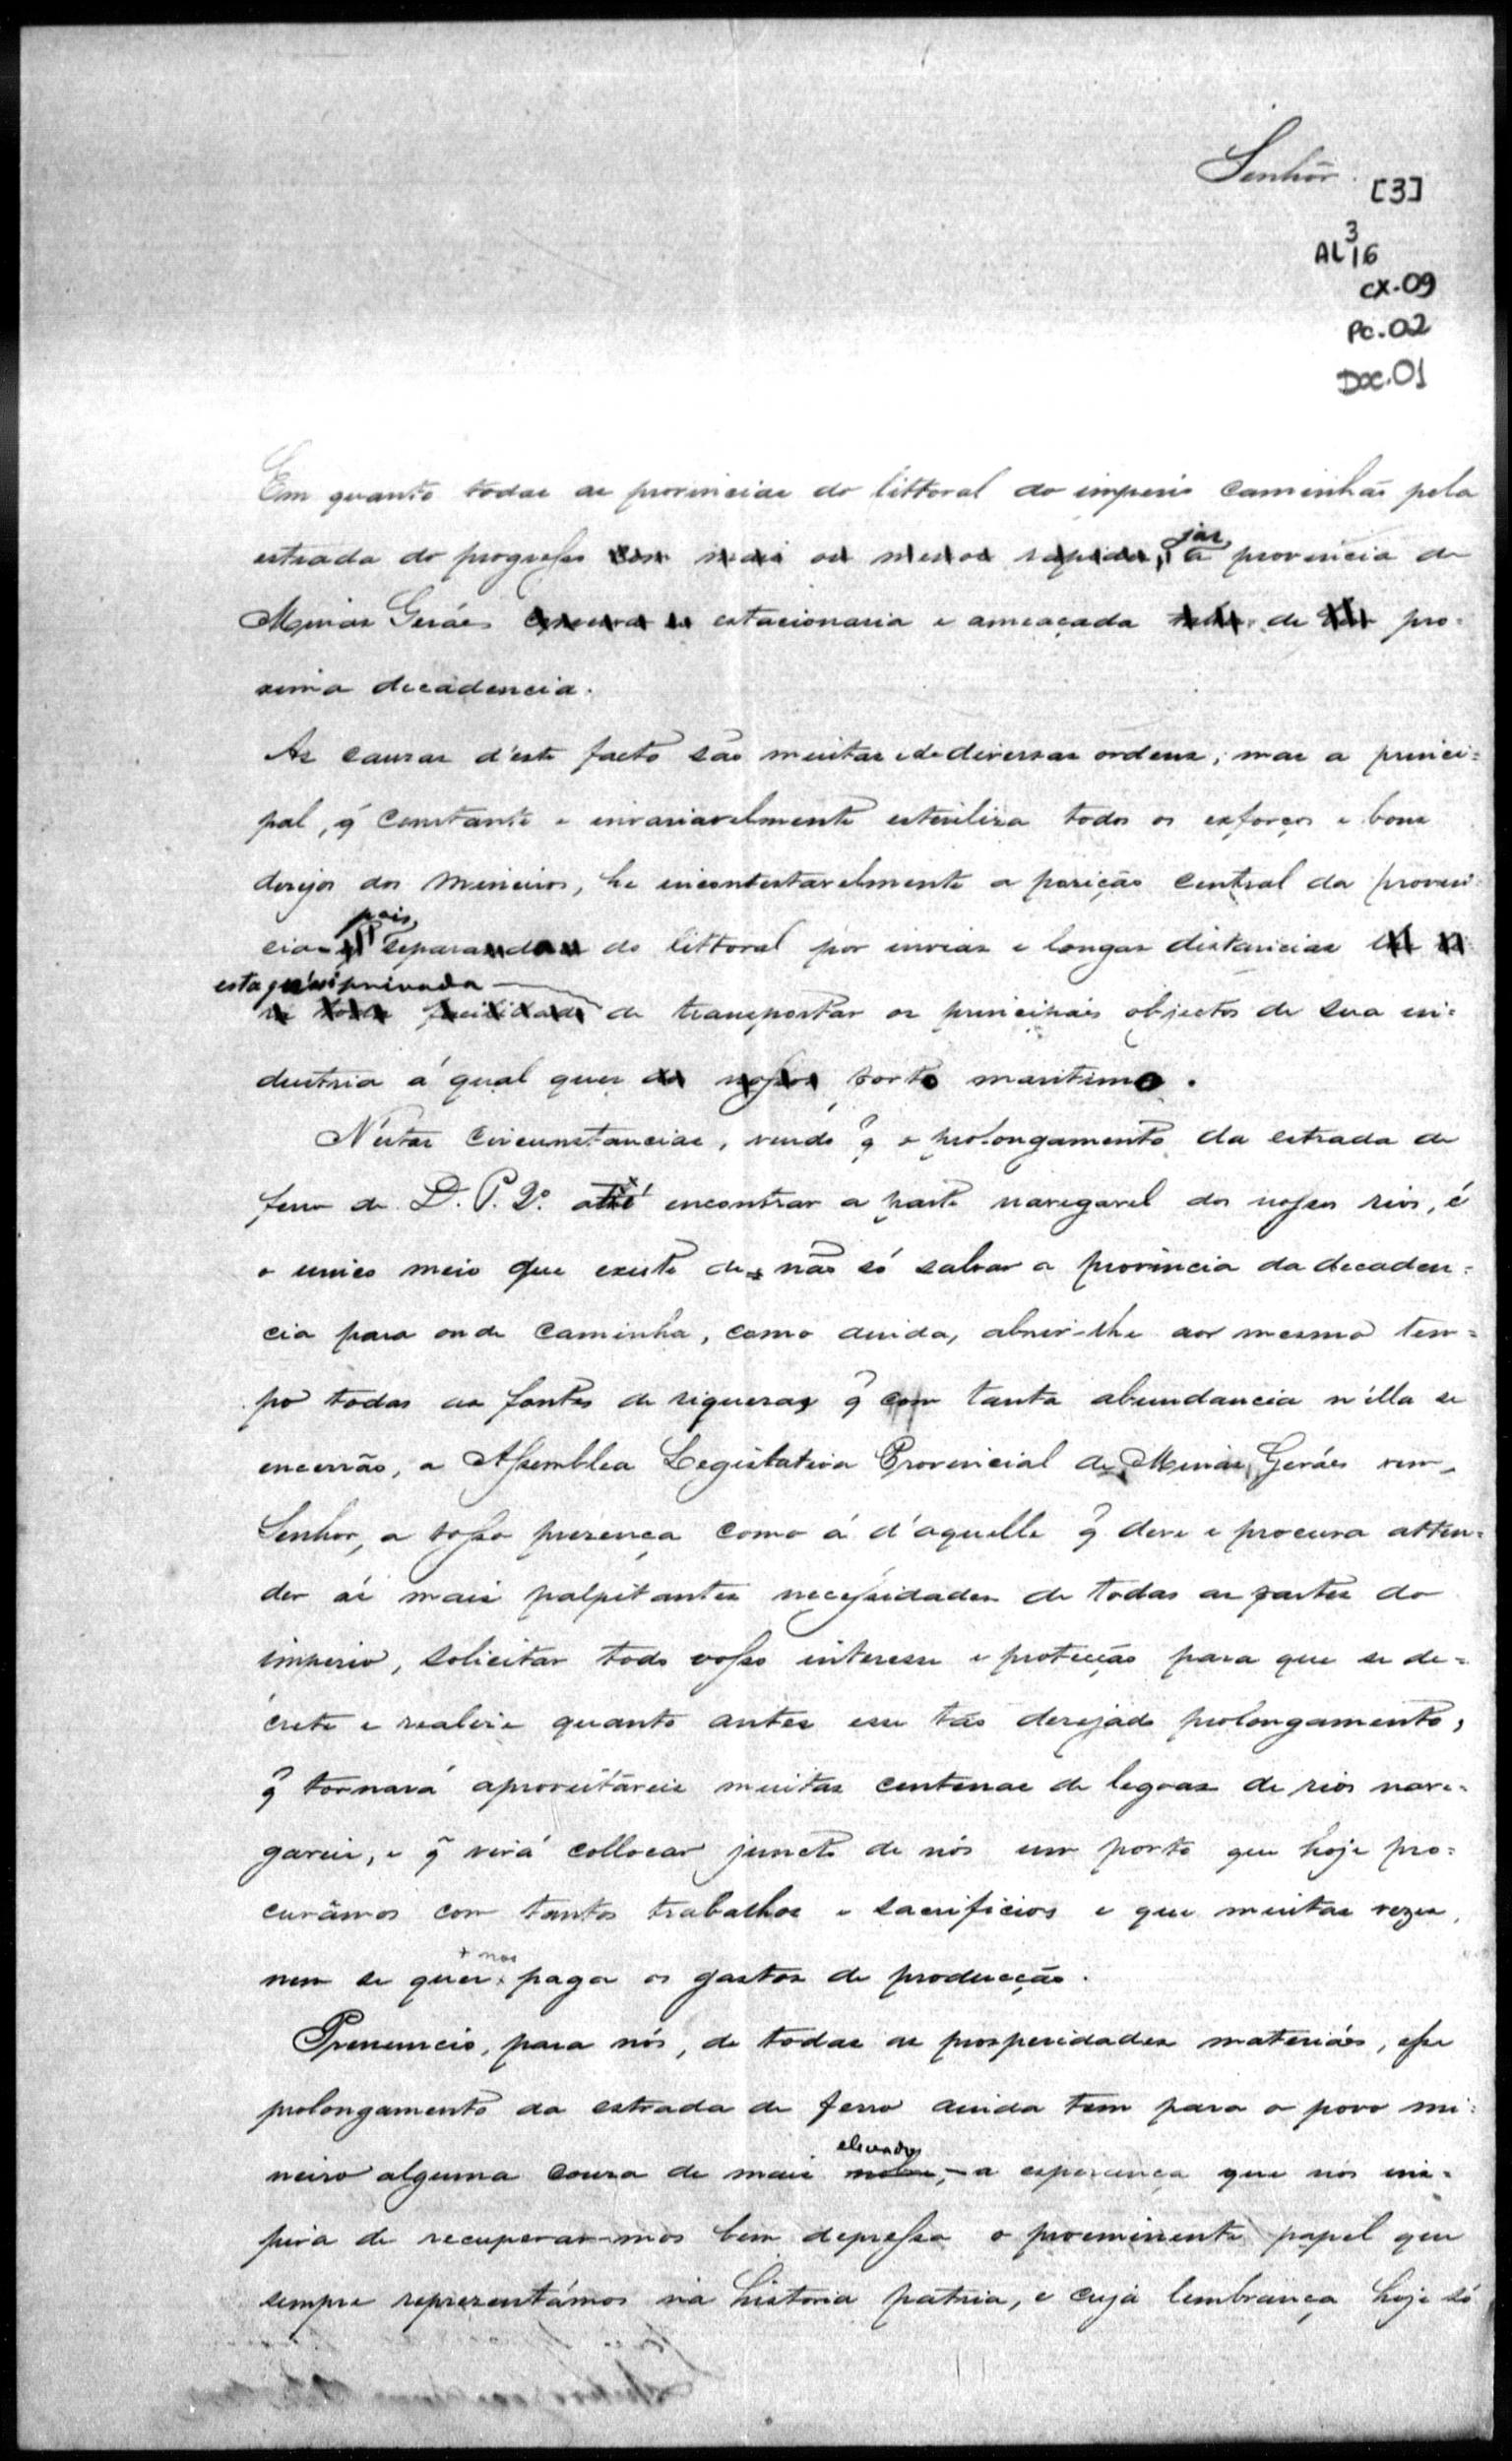 Senhor.
[3]
AL 3 16
CX.09
PC.02
Doc.01
Em quanto todas as provincias do littoral do imperio caminhão pela
estrada do progresso com mais ou menos rapidez, jas a provincia de
Minas Geráes estacionaria e ameaçada de pro-
xima decadencia.
As causas d'este facto são muitas e de diversas ordens; mas a princi-
pal, q̃ constante e invariavelmente esterilisa todos os esforços e bons
desejos dos Mineiros, he incontestavelmente a posição central da provin-
cia pois separada do littoral por invias e longas distancias
esta quasi privada
de transportar os principais objectos de sua in-
dustria á qual quer porto maritimo.
N'estas circunstancias, vendo q̃ o prolongamento da estrada de
ferro de D. P. 2º até encontrar a parte navegavel dos nossos rios, é
o unico meio que existe de não só salvar a provincia da decaden-
cia para onde caminha, como ainda, abrir-lhe aos mesmo tem-
po todas as fontes de riquezas q̃ com tanta abundancia n'ella se
encerrão, a Assemblea Legislativa Provincial de Minas Geráes vem,
Senhor, a vossa presença como á d'aquelle q̃ deve e procura atten-
der ás mais palpitantes necessidades de todas as partes do
imperio, solicitar todo vosso interesse e protecção para que se de-
crete e realise quanto antes esse tão desejado prolongamento,
q̃ tornará aproveitáveis muitas centenas de legoas de rios nave-
gaveis, e q̃ virá collocar juncto de nós um porto que hoje pro-
curâmos com tantos trabalhos e sacrificios e que muitas vezes,
nem se quer + nos paga os gastos de producção.
Prenuncio, para nós, de todas as prosperidades materiáes, esse
prolongamento da estrada de ferro ainda tem para o povo mi-
neiro alguma cousa de mais nobre, elevado, - a esperança que nos ins-
pira de recuperar-mos bem depressa o proeminente papel que
sempre representámos na historia patria, e cuja lembrança hoje só